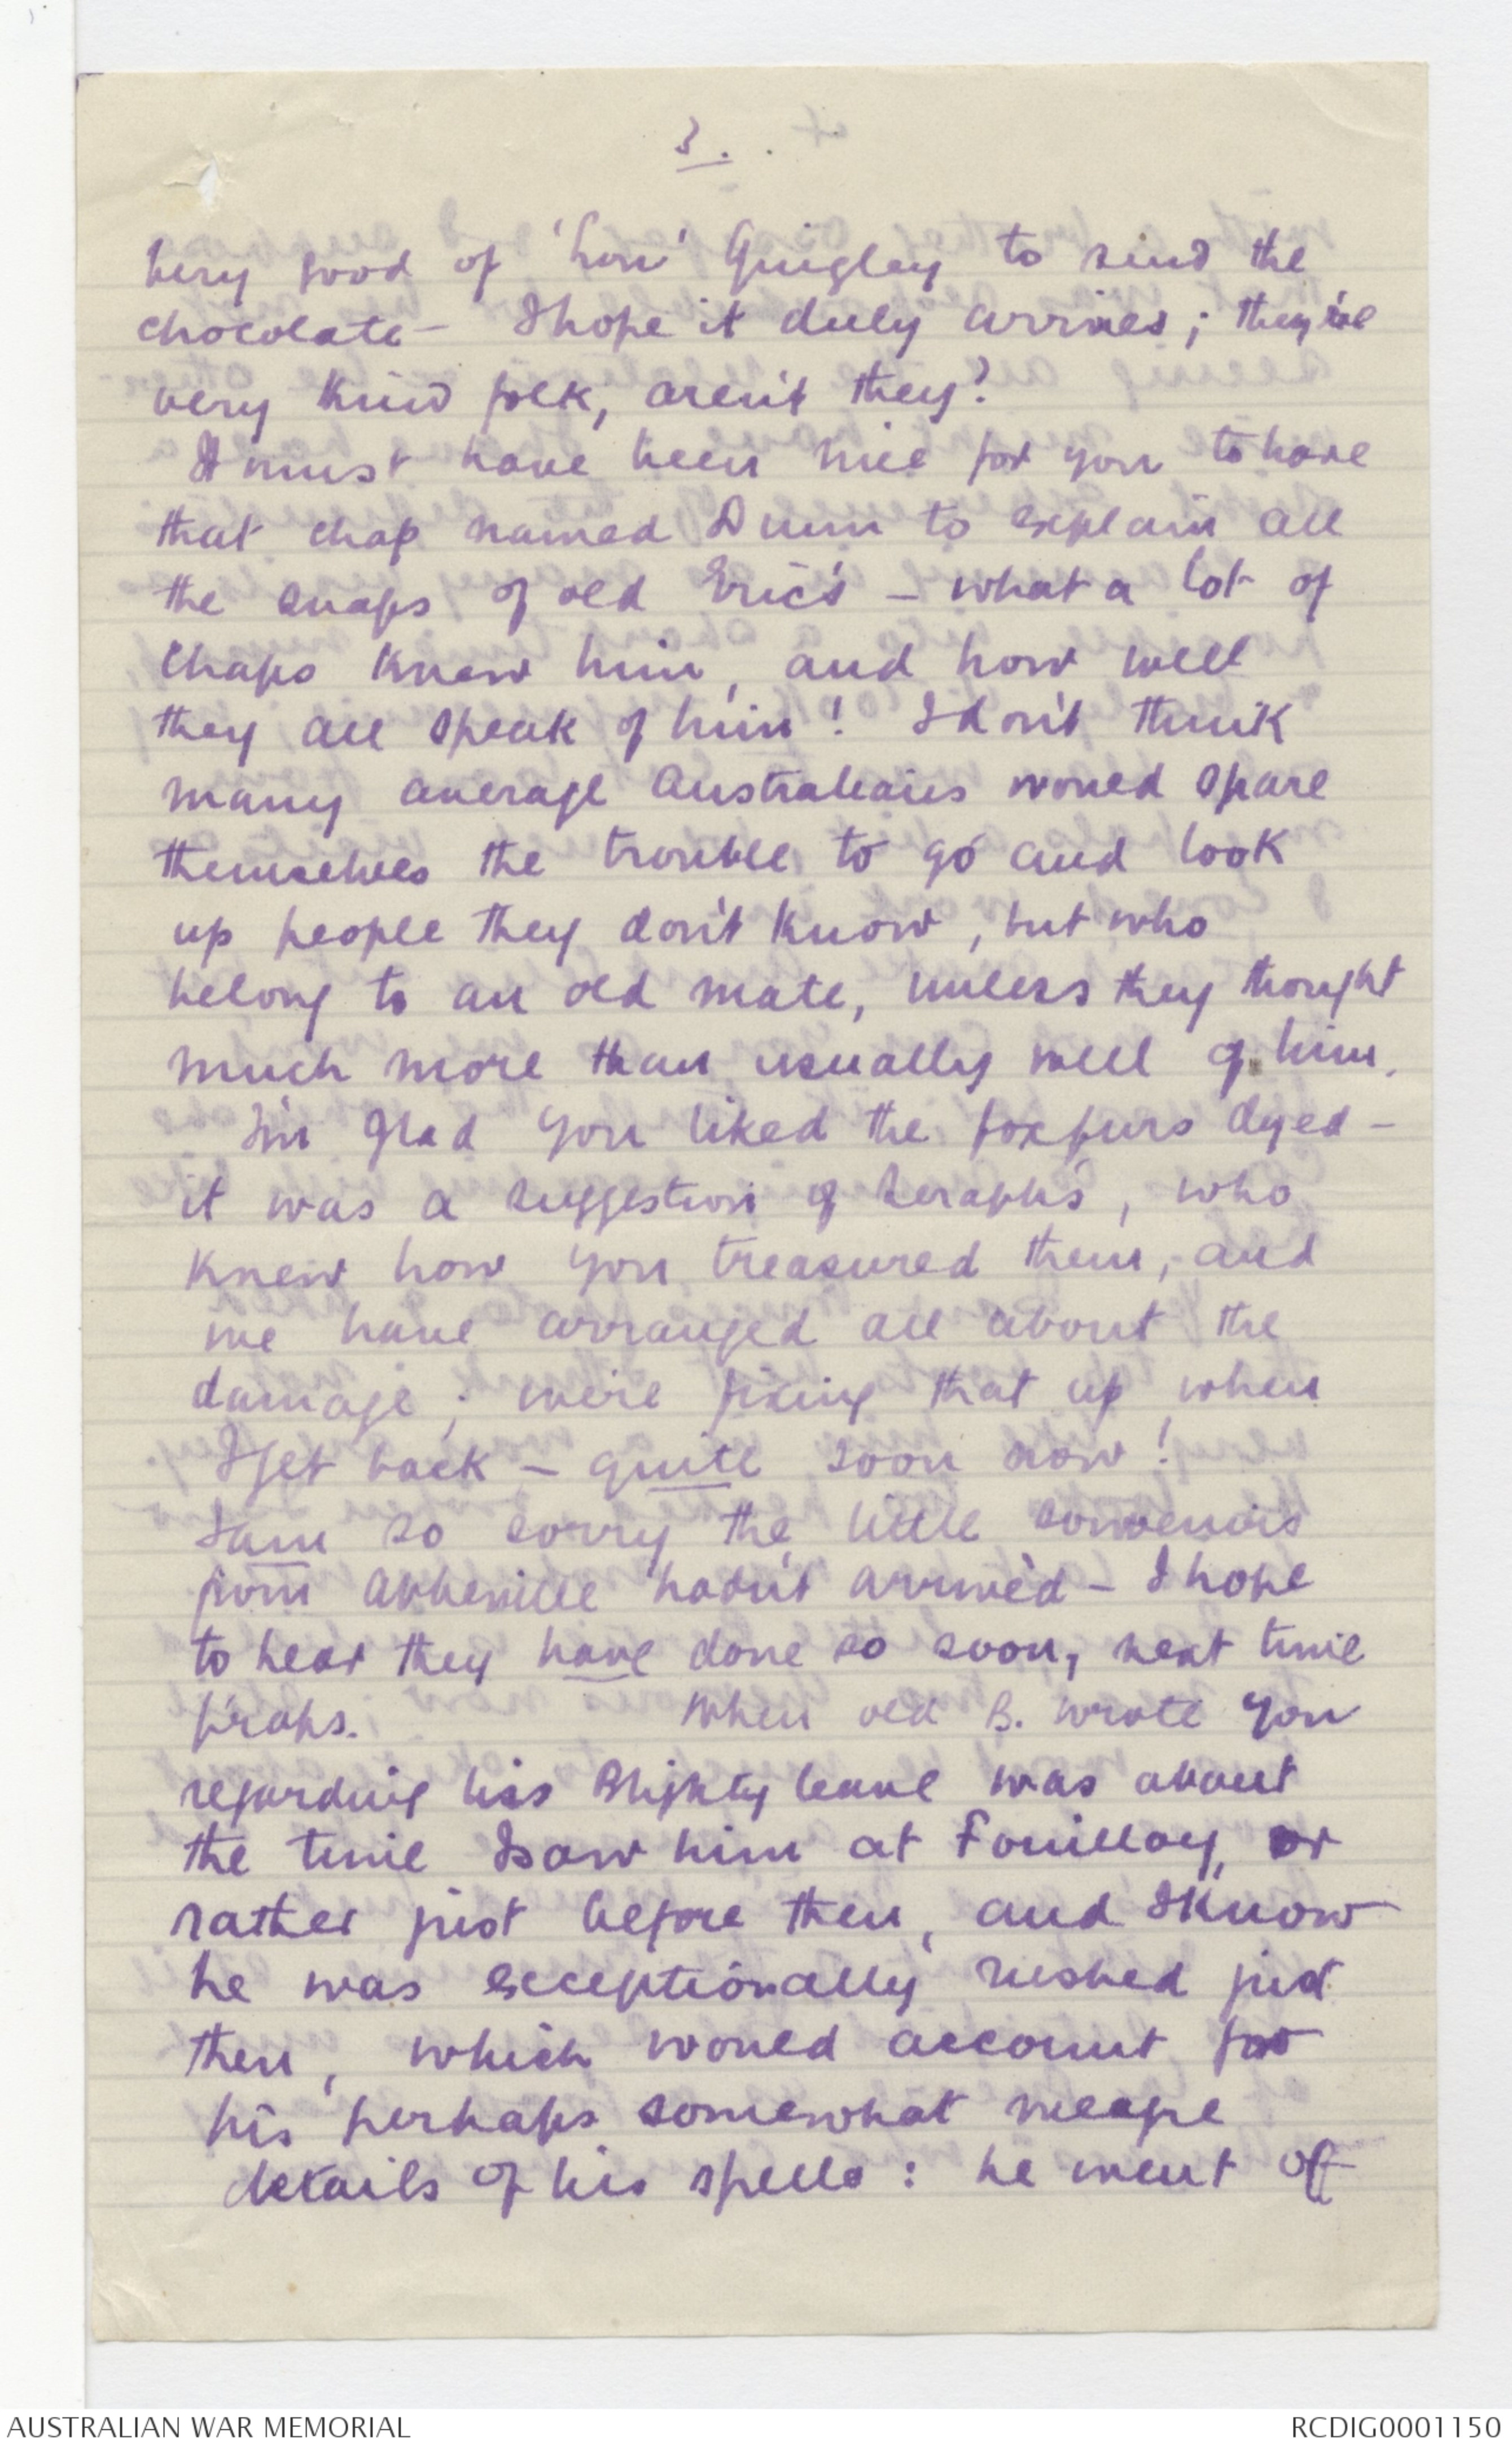 3.
very good of 'Lou' Quigley to send the
chocolate - I hope it duly arrives; they're
very kind folk, aren't they?
It must have been nice for you to have
that chap named Dunn to explain all
the snaps of old Eric's - what a lot of
chaps knew him, and how well
they all speak of him! I don't think
many average Australians would spare
themselves the trouble to go and look
up people they don't know, but who
belong to an old mate, unless they thought
much more than usually well of him.
I'm glad you liked the fox furs dyed -
it was a suggestion of Seraph's, who
knew how you treasured them, and
we have arranged all about the
damage; we're fixing that up when
I get back - quite soon now!
I am so sorry the little souvenirs
from Abbeville hadn't arrived - I hope
to hear they have done so soon, next time
p'raps. When old B. wrote you
regarding his Blighty leave was about
the time I saw him at Fouilloy, or
rather just before then, and I know
he was exceptionally rushed just
then, which would account for
his perhaps somewhat meagre
details of his spells: he went off
AUSTRALIAN WAR MEMORIAL
RCDIG0001150